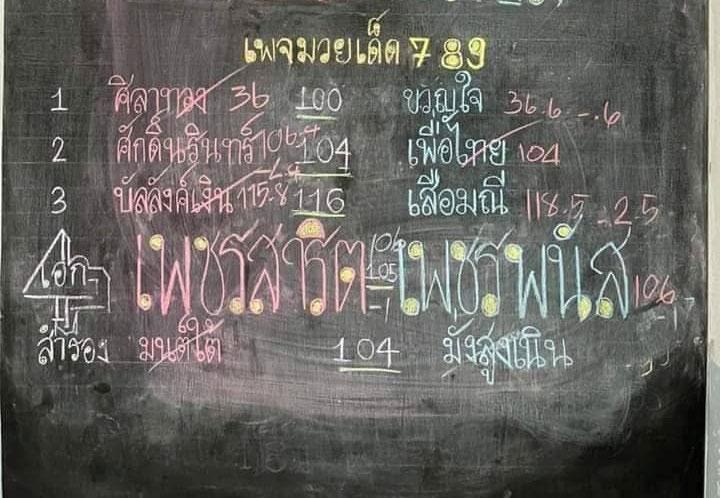 เพจมวยเด็ด 789
1 ศิลาทอง 36 100 ขวัญใจ 36.6 -.6
2 ศักดิ์นรินทร์ 106.4 104 เพื่อไทย 104
3 บัลลังค์เงิน 115.8 116 เสือมณี 118.5 -2.5
เอก เพชรสาริต 105 -1 เพชรพนัส 106
สำรอง มนต์ใต้ 104 มังสูงเนิน